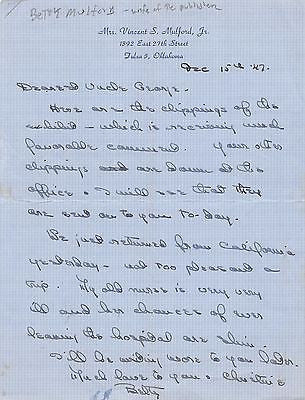 Betty Mulford - wife of the publisher
Mrs. Vincent S. Mulford, Jr.
1392 East 27th Street
Tulsa 5, Oklahoma
Dec 15th '47.
Dearest Uncle George -
Here are the clippings of the
exhibit - which is receiving much
favorable comment. Your other
clippings are down at the
office & I will see that they
are sent on to you to-day.
We just returned from California
yesterday - not too pleasant a
trip. My old nurse is very very
ill and her chances of ever
leaving the hospital are slim.
I'll be writing more to you later.
Much love to you & Christine
Betty